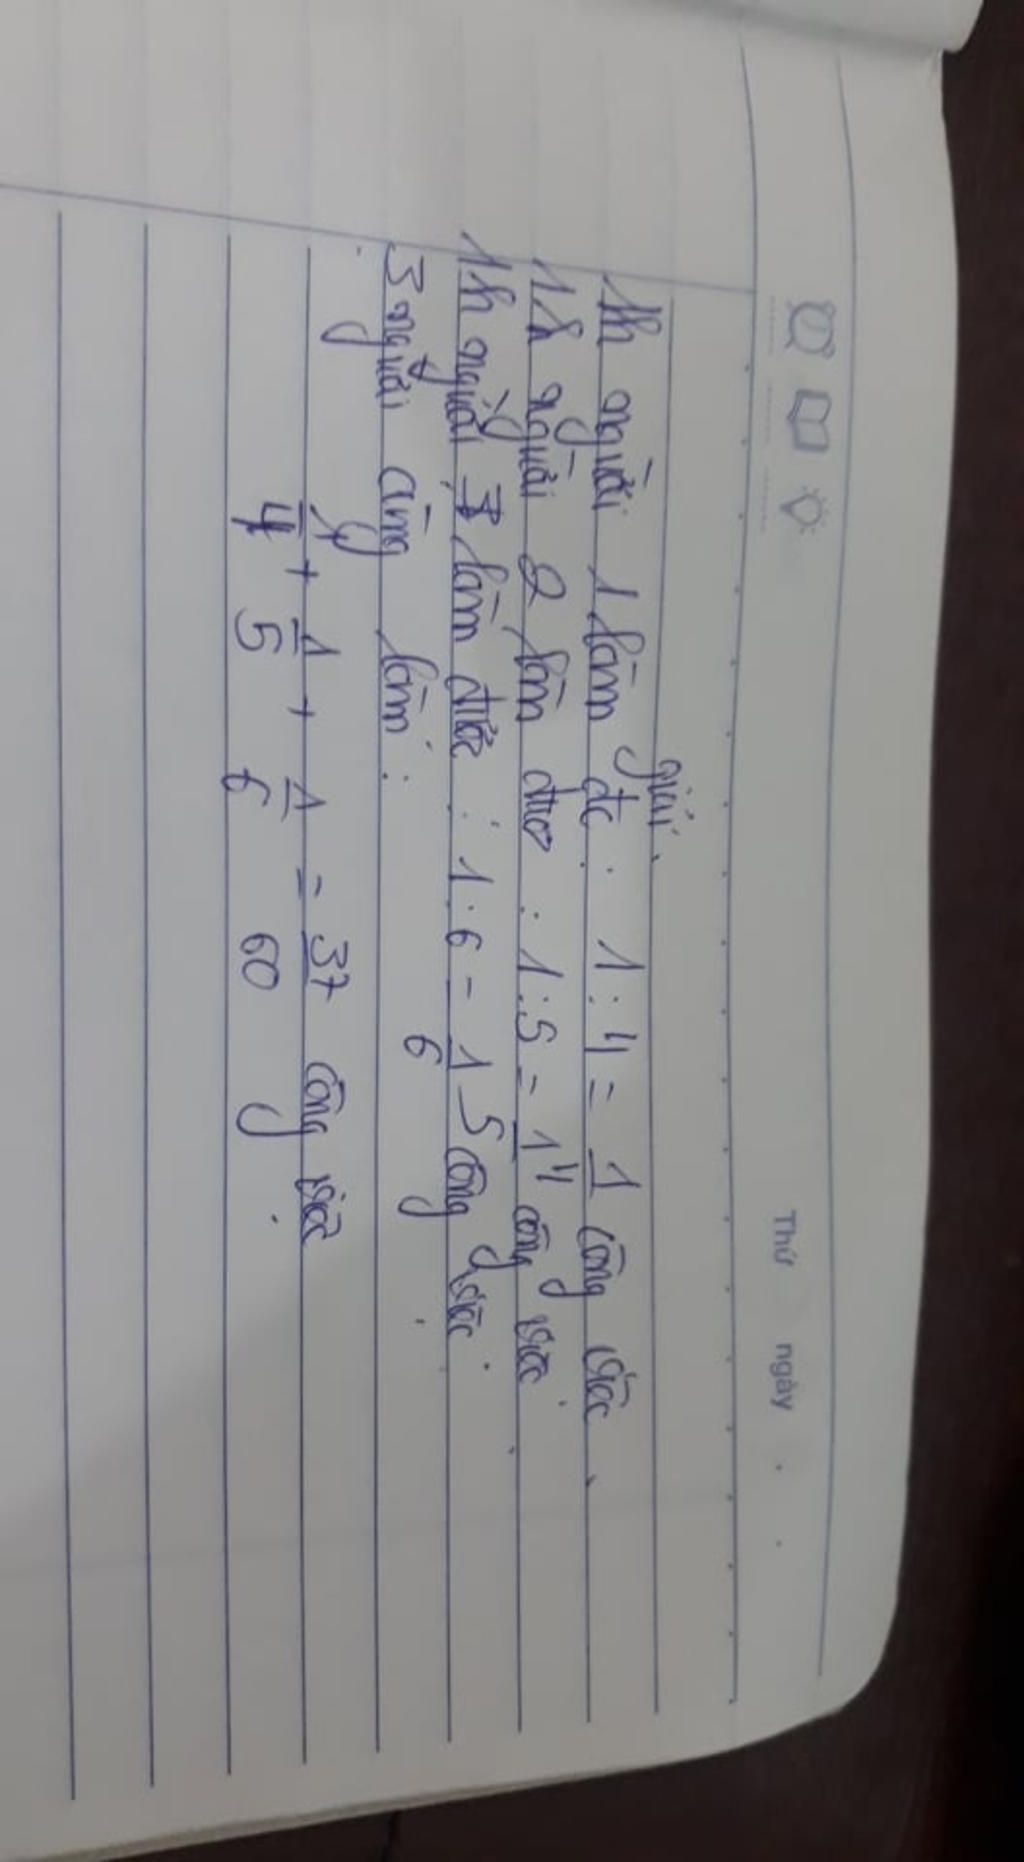 Thứ ngày
giải.
1h người 1 làm đc : 1 : 4 = 1 công việc.
4
1h người 2 làm đươ : 1 : 5 = 1 công việc.
5
1h người 3 làm được : 1 : 6 = 1 công việc.
6
3 người cùng làm :
1 + 1 + 1 = 37 công việc.
4 5 6 60